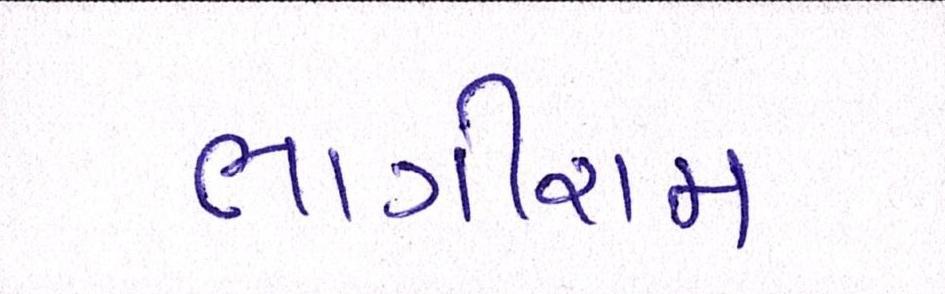 ભાગીરામ